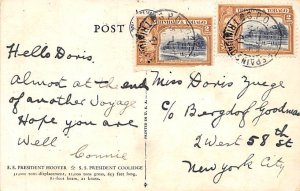 POST
TRINIDAD & TOBAGO
TRINIDAD & TOBAGO
Hello Doris,
Almost at the end
of another Voyage
Hope you are
Well
Connie
Miss Doris Zuege
c/o Bergdorf Goodman
2 West 58th St
New York City
PRINTED IN U.S.A.
S. S. PRESIDENT HOOVER S. S. PRESIDENT COOLIDGE
31,000 tons displacement, 22,000 tons gross, 653 feet long,
81-foot beam, 21 knots.